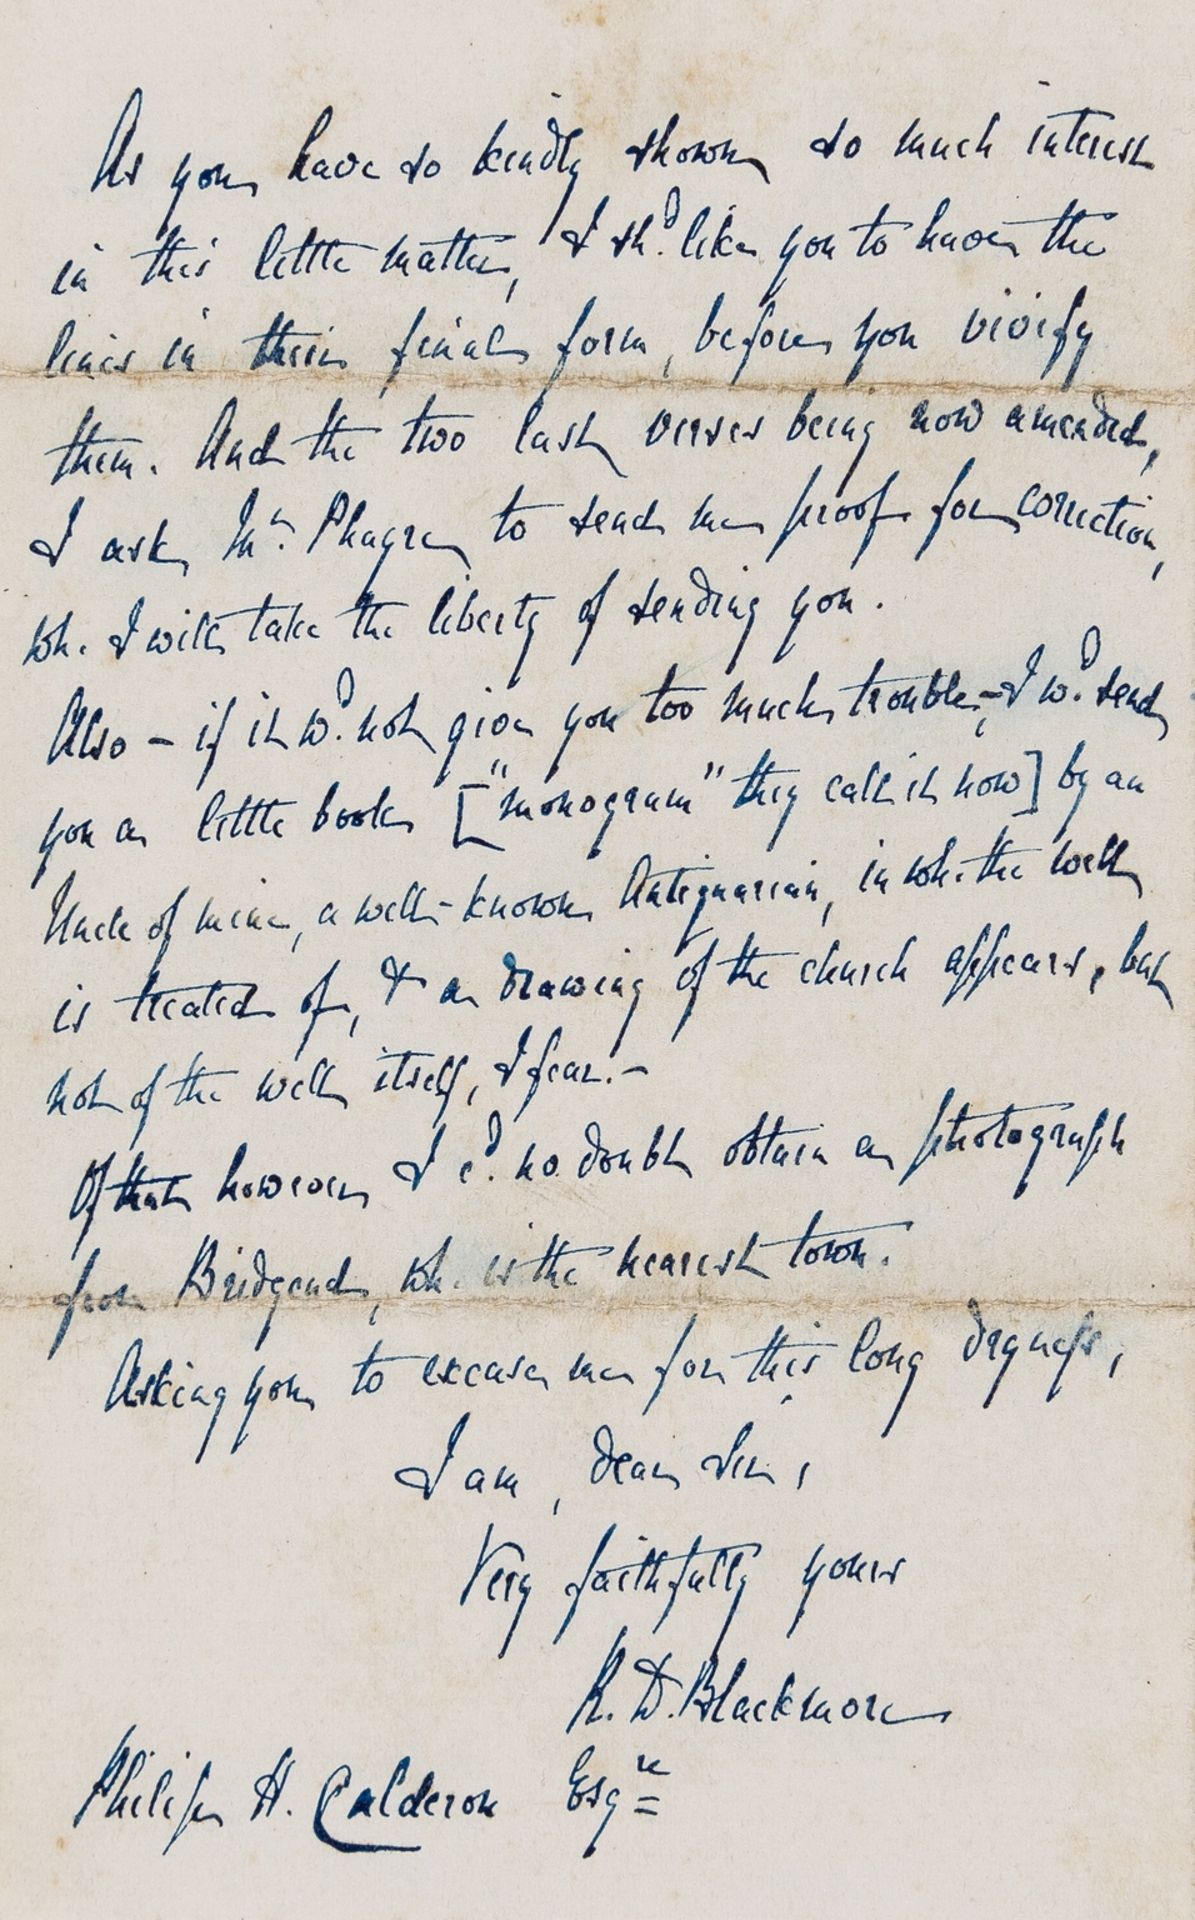 As you have so kindly shown so much interest
in this little matter, I shd. like you to have the
lines in their final form, before you vivify
them. And the two last verses being now amended,
I ask Mr. Phayre to send me proof for correction,
wh. I will take the liberty of sending you.
Also – if it wd. not give you too much trouble, – I wd. send
you a little book ["monogram" they call it now] by an
Uncle of mine, a well-known Antiquarian, in wh. the well
is treated of, & a drawing of the church appears, but
not of the well itself, I fear. –
Of that however I cd. no doubt obtain a photograph
from Bridgend, wh. is the nearest town.
Asking you to excuse me for this long
I am, dear Sir,
Very faithfully yours
R. D. Blackmore
Philip H. Calderon Esqre